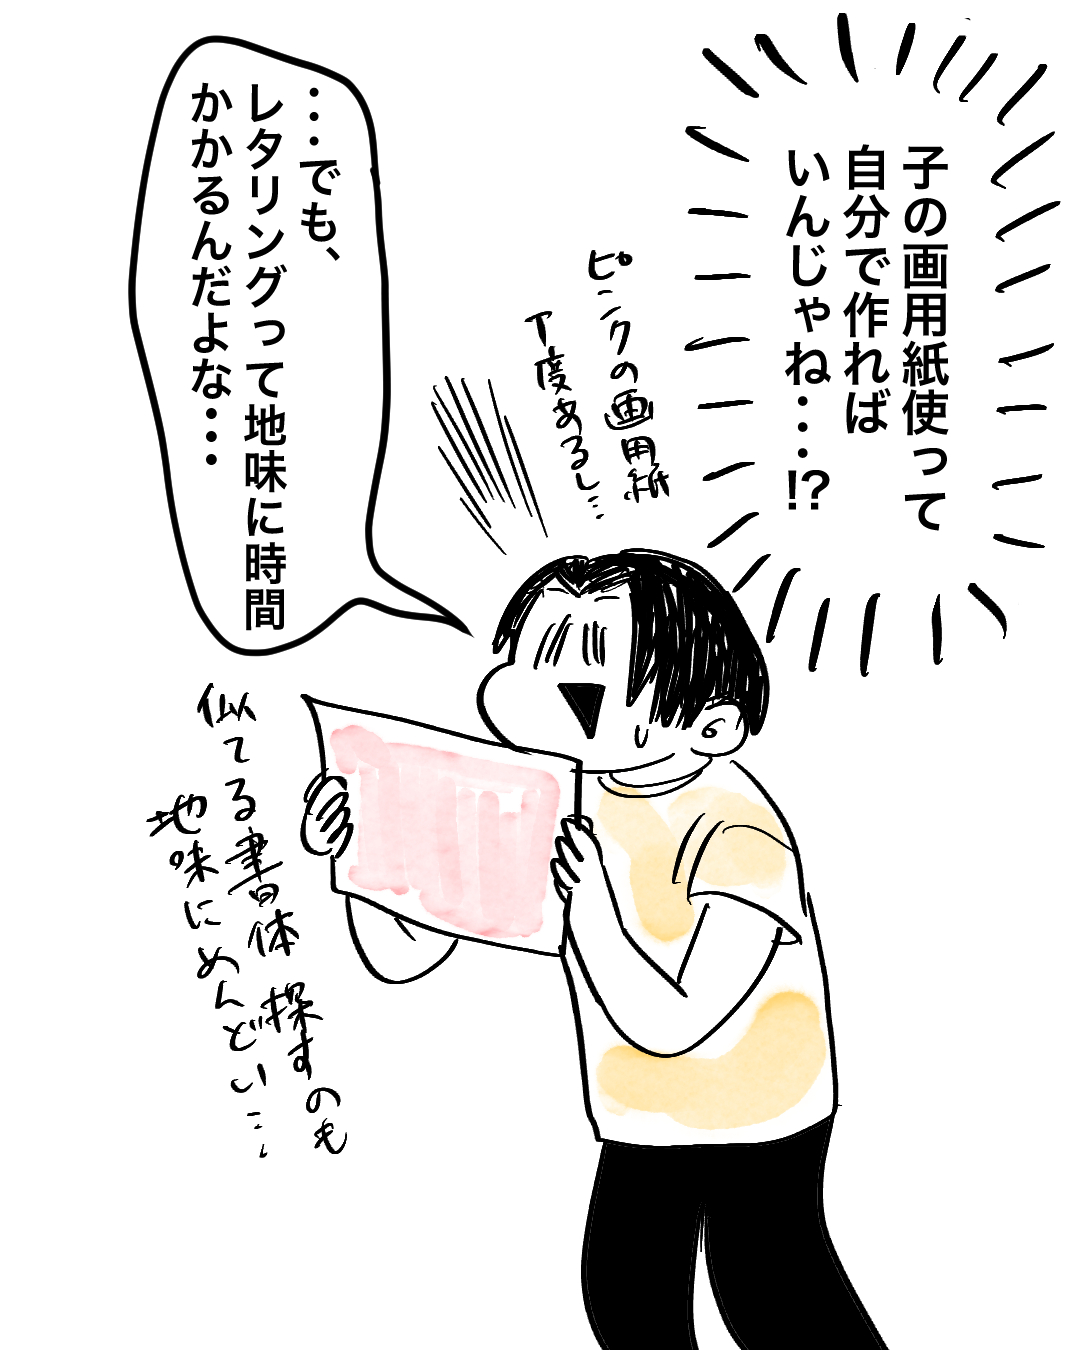 子の画用紙使って
自分で作れば
いんじゃね・・・!?
ピンクの画用紙
丁度あるし…
・・・でも、
レタリングって地味に時間
かかるんだよな・・・
似てる書体 探すのも
地味にめんどい…